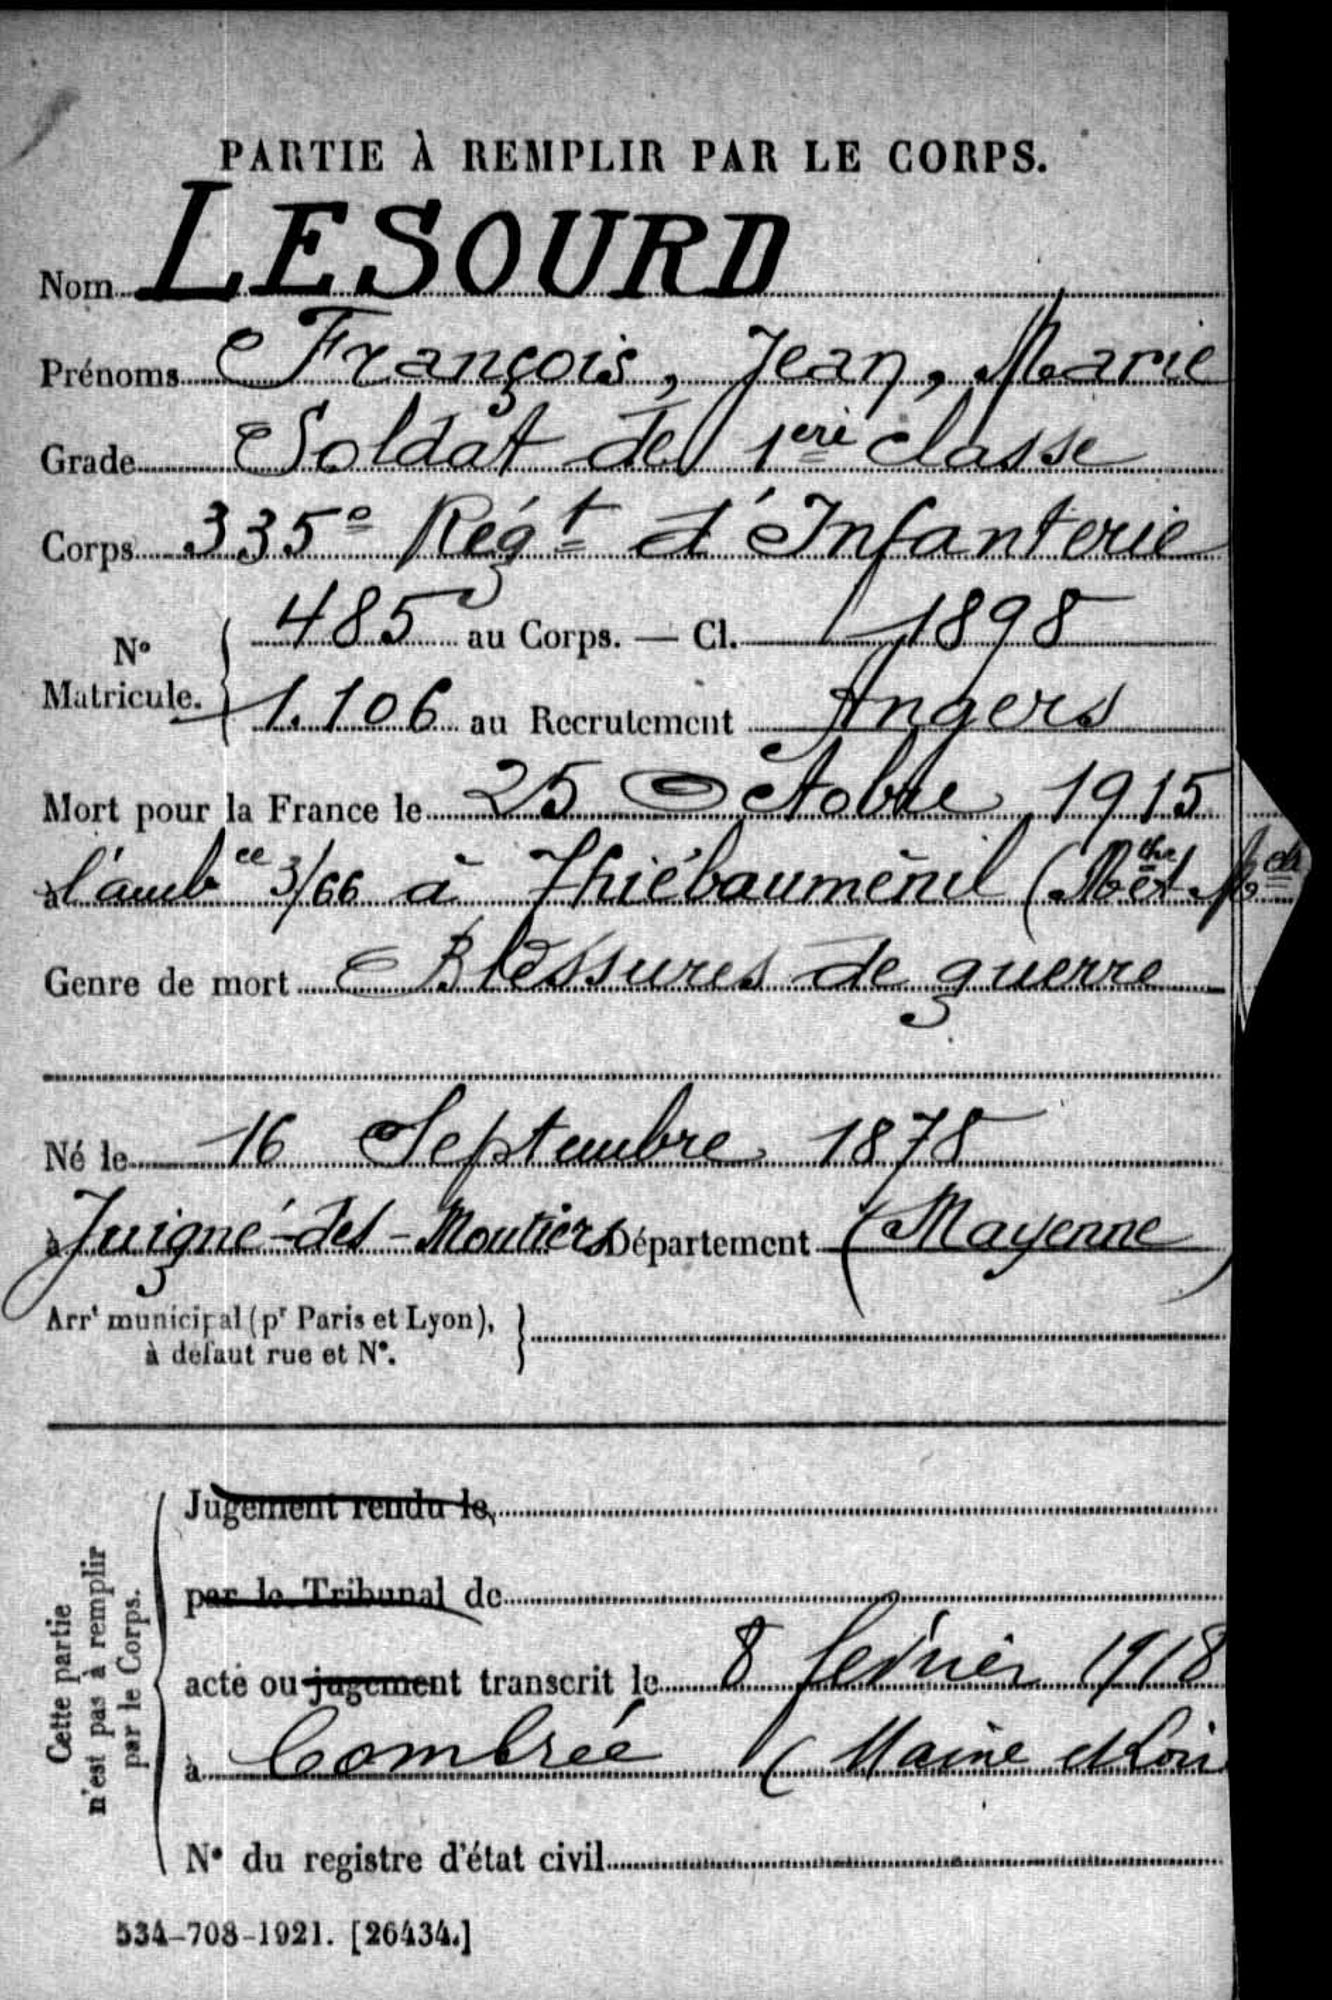 PARTIE À REMPLIR PAR LE CORPS.
Nom LESOURD
Prénoms François, Jean, Marie
Grade Soldat de 1ère classe
Corps 335e Régt d'Infanterie
No Matricule. 485 au Corps. — Cl. 1898
1.106 au Recrutement Angers
Mort pour la France le 25 Octobre 1915
à l'ambce 3/66 à Thiébauménil (Mthe et Mlle
Genre de mort Blessures de guerre
Né le 16 Septembre 1878
à Juigné-des-Moutiers Département (Mayenne)
Arrt municipal (pr Paris et Lyon),
à défaut rue et N°.
Cette partie
n'est pas à remplir
par le Corps.
Jugement rendu le
par le Tribunal de
acte ou jugement transcrit le 8 février 1918
à Combrée (Maine et Loir
N° du registre d'état civil
534-708-1921. [26434.]